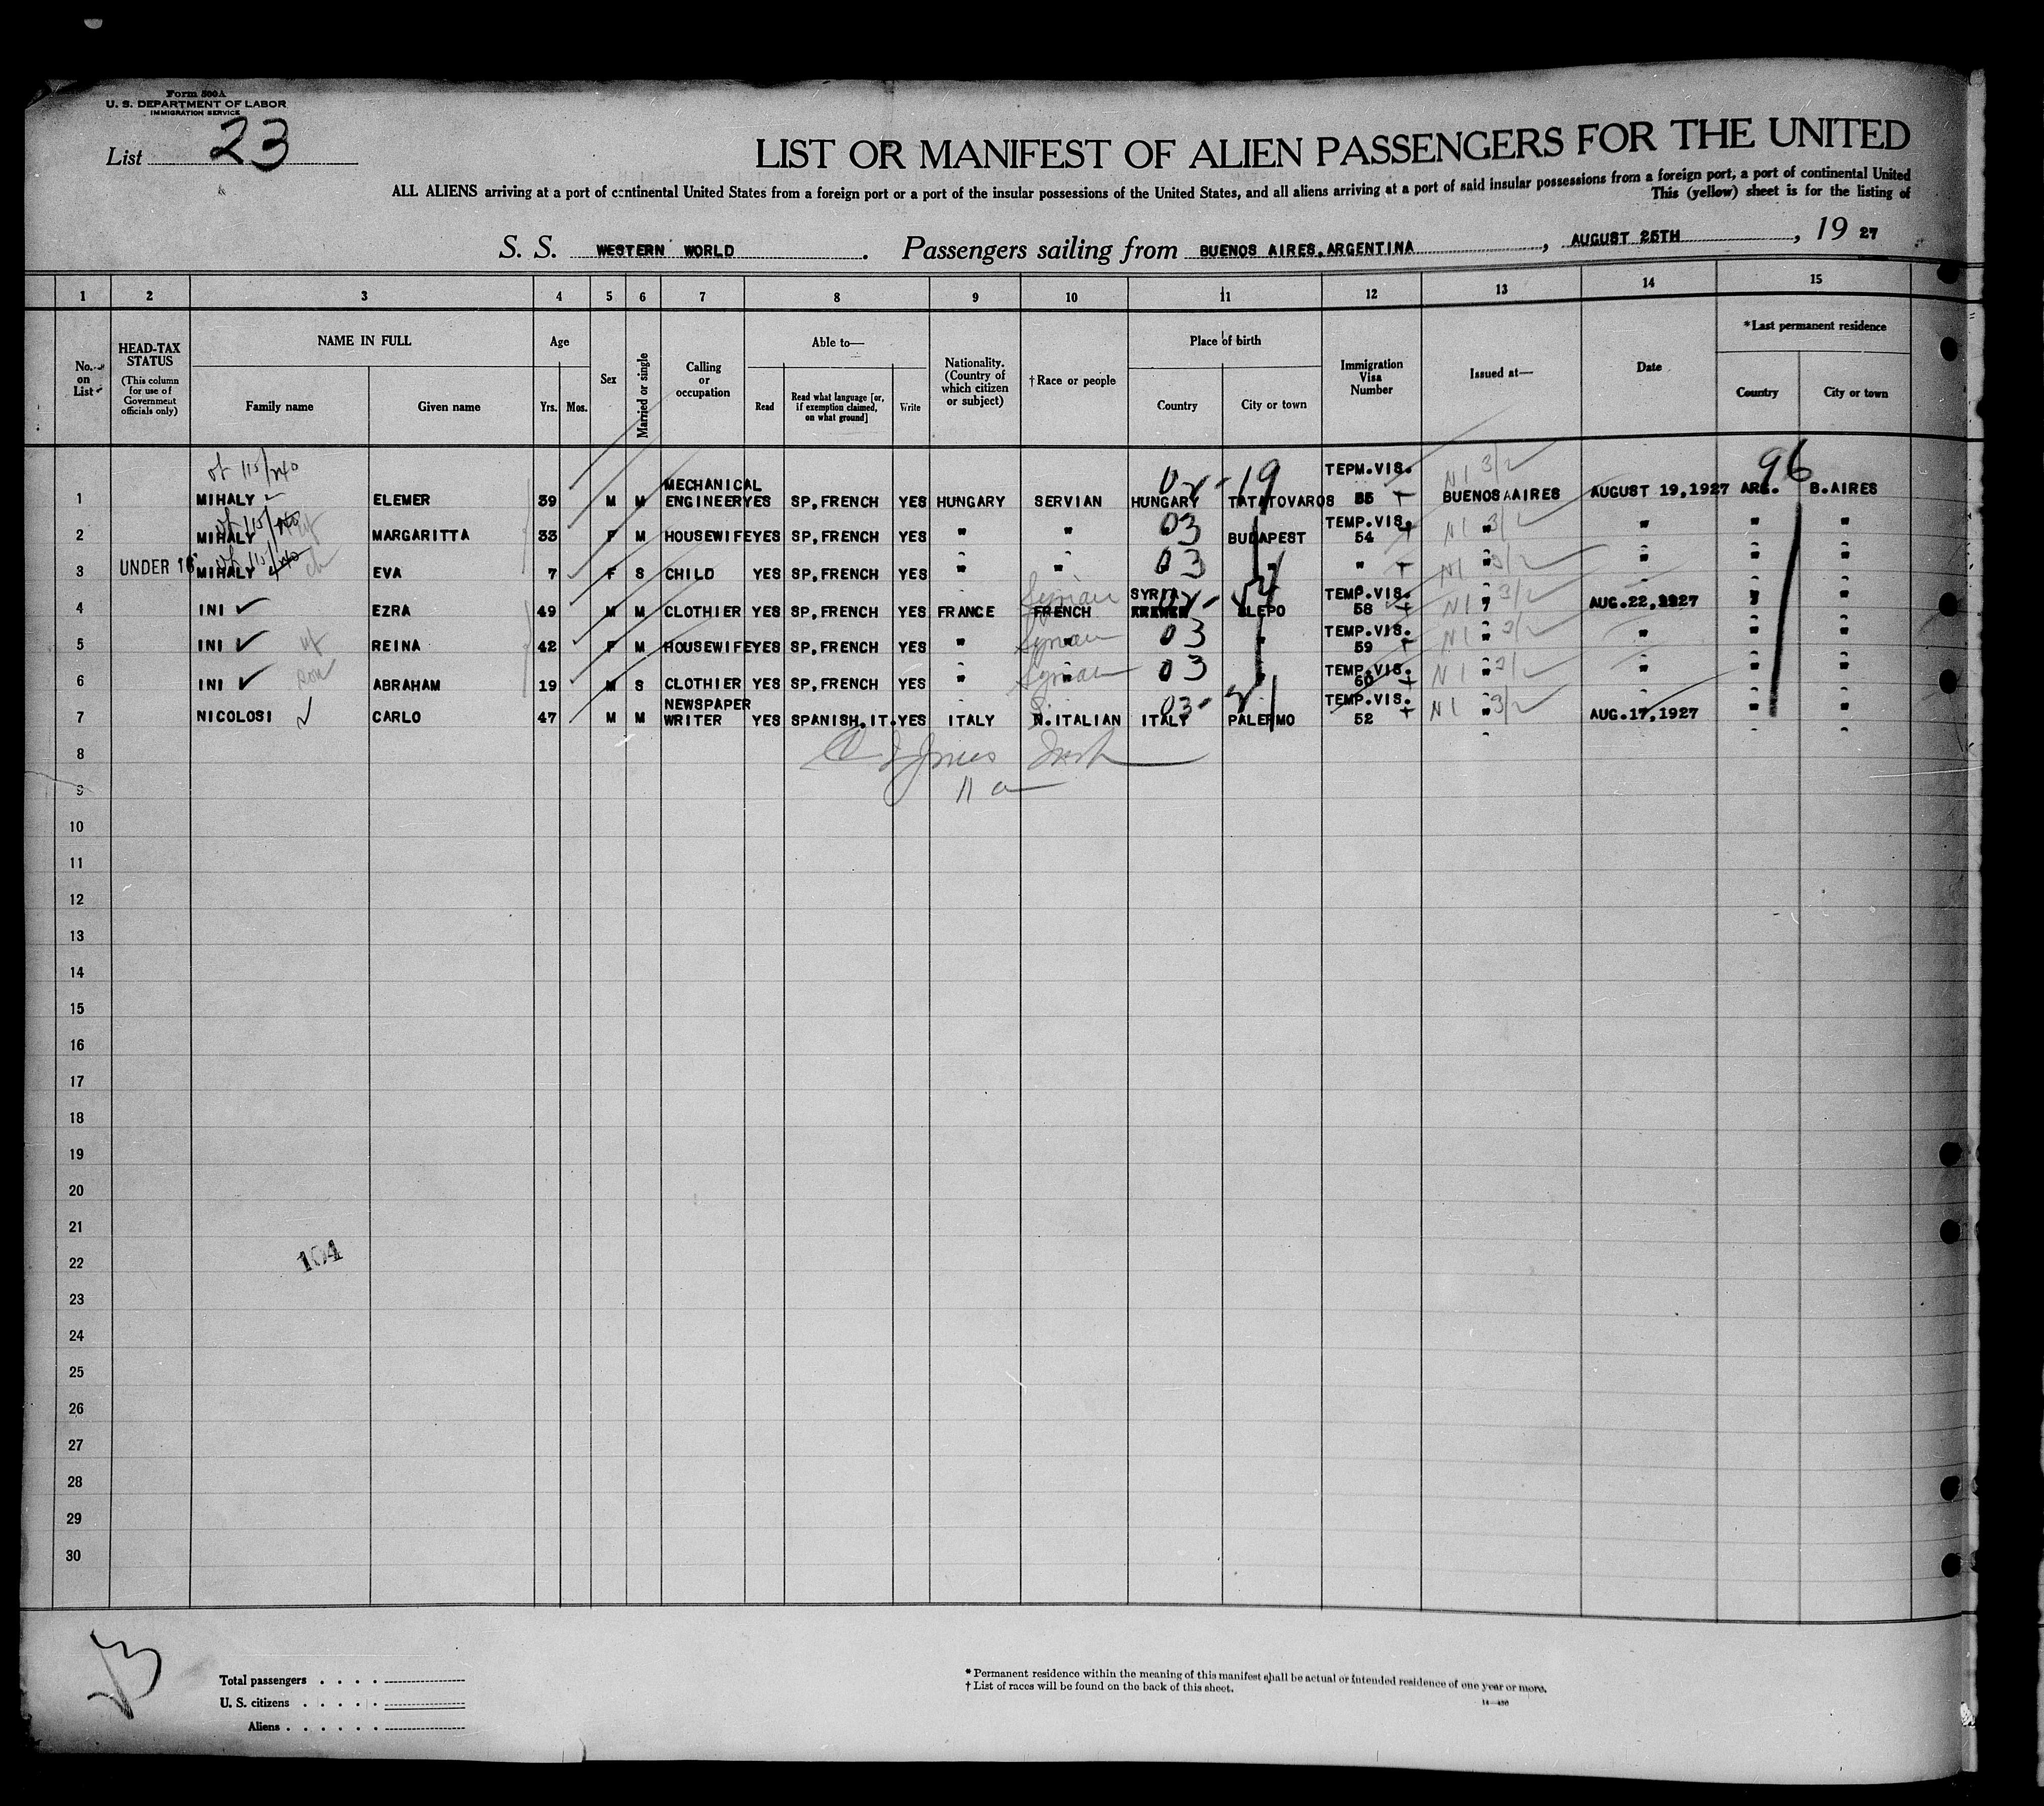 Form 500A
U. S. DEPARTMENT OF LABOR
IMMIGRATION SERVICE
List 23
LIST OR MANIFEST OF ALIEN PASSENGERS FOR THE UNITED
ALL ALIENS arriving at a port of continental United States from a foreign port or a port of the insular possessions of the United States, and all aliens arriving at a port of said insular possessions from a foreign port, a port of continental United
This (yellow) sheet is for the listing of
S. S. WESTERN WORLD. Passengers sailing from BUENOS AIRES, ARGENTINA, AUGUST 25TH, 19 27
1 2 3 4 5 6 7 8 9 10 11 12 13 14 15
No. on List
HEAD-TAX STATUS (This column for use of Government officials only)
NAME IN FULL Family name Given name
Age Yrs. Mos.
Sex
Married or single
Calling or occupation
Able to— Read Read what language [or, if exemption claimed, on what ground] Write
Nationality. (Country of which citizen or subject)
†Race or people
Place of birth Country City or town
Immigration Visa Number
Issued at—
Date
*Last permanent residence Country City or town
96
02-19
1 MIHALY ELEMER 39 M M MECHANICAL ENGINEER YES SP, FRENCH YES HUNGARY SERVIAN HUNGARY TATATOVAROS TEPM.VIS. NI 3/2 BUENOS AIRES AUGUST 19,1927 ARG. B.AIRES
2 MIHALY wf MARGARITTA 33 F M HOUSEWIFE YES SP, FRENCH YES " " 03 BUDAPEST TEMP.VIS. 54 NI 3/2 " " " "
3 UNDER 16 MIHALY ch EVA 7 F S CHILD YES SP, FRENCH YES " " 03 " " NI 3/2 " " " "
4 INI EZRA 49 M M CLOTHIER YES SP, FRENCH YES FRANCE FRENCH Syrian SYRIA ALEPO TEMP.VIS. 58 NI 3/2 " AUG.22,1927 " "
5 INI wf REINA 42 F M HOUSEWIFE YES SP, FRENCH YES " " Syrian 03 " TEMP.VIS. 59 NI 3/2 " " " "
6 INI son ABRAHAM 19 M S CLOTHIER YES SP, FRENCH YES " " Syrian 03 TEMP.VIS. 60 NI 3/2 " " " "
7 NICOLOSI CARLO 47 M M NEWSPAPER WRITER YES SPANISH, IT. YES ITALY N.ITALIAN ITALY PALERMO TEMP.VIS. 52 NI 3/2 " AUG.17,1927 " "
8
9
10
11
12
13
14
15
16
17
18
19
20
21
22
104
23
24
25
26
27
28
29
30
Total passengers
U. S. citizens
Aliens
* Permanent residence within the meaning of this manifest shall be actual or intended residence of one year or more.
† List of races will be found on the back of this sheet.